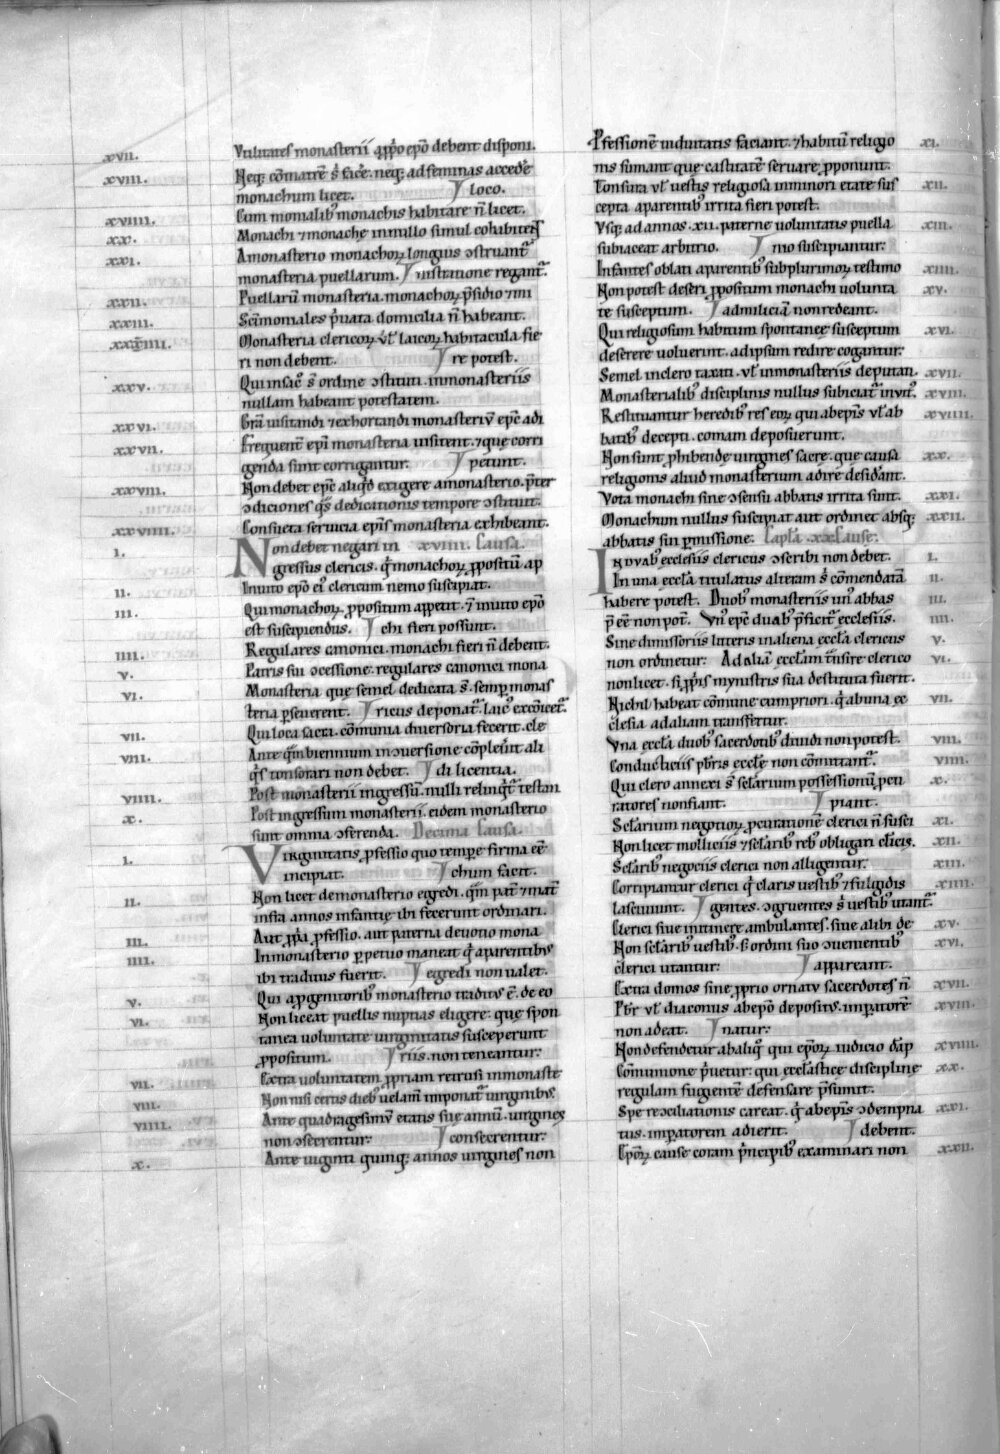 xvii. Vtilitates monasterii a ꝓp̃o ep̃o debent disponi.
xviii. Neq; cõmatrẽ s̃ facẽ. neq; ad feminas accedẽ
monachum licet. loco.
xviiii. Cum monialib; monachis habitare ñ licet.
xx. Monachi ⁊ monachę in nullo simul cohabitent
xxi. A monasterio monachoꝝ longius ↄstruant᷑
monasteria puellarum. nistratione regant᷑.
xxii. Puellarũ monasteria. monachoꝝ p̃sidio ⁊ mi
xxiii. Sc̃imoniales p̃uata domicilia ñ habeant.
xxiiii. Monasteria clericoꝝ ut̃ laicoꝝ habitacula fie
ri non debent. re potest.
xxv. Qui in sac̃o s̃ ordine ↄstituti. in monasteriis
nullam habeant potestatem.
xxvi. Cr̃a uisitandi ⁊ exhortandi monasteriũ ep̃c adi
xxvii. Frequent̃ ep̃i monasteria uisitent. ⁊ quę corri
genda sunt corrigantur. petunt.
xxviii. Non debet ep̃c aliqd̃ exigere a monasterio. p̃ter
ↄdiciones q̃s dedicationis tempore ↄstituit.
xxviiii. Consueta seruicia ep̃is monasteria exhibeant.
i. Non debet negari in xviiii. Causa.
gressus clericis. q̃ monachoꝝ ꝓpositũ ap
ii. Inuito ep̃o ei᷒ clericum nemo suscipiat. petunt
iii. Qui monachoꝝ ꝓpositum appetit. ⁊ inuito ep̃o
est suscipiendus. chi fieri possunt.
iiii. Regulares canonici. monachi fieri ñ debent.
v. Patris sui ↄcessione. regulares canonici mona
vi. Monasteria que semel dedicata s̃. semp̱ monas
teria ꝑseuerent. ricus deponat᷑. laic᷒ excõicet᷑.
vii. Qui loca sacra. cõmunia diuersoria fecerit. cle
viii. Ante q̃m biennium in ↄuersione cõpleũit ali
q̃s tonsorari non debet. di licentia.
viiii. Post monasterii ingressũ. nulli relinqt̃᷑ testan
x. Post ingressum monasterii. eidem monasterio
sunt omnia ↄferenda. Decima Causa.
i. Virginitatis ꝓfessio quo temp̱e firma eẽ
incipiat. chum facit.
ii. Non licet de monasterio egredi. q̃m pat̃ ⁊ mat̃
infra annos infantię ibi fecerunt ordinari.
iii. Aut ꝓp̃a ꝓfessio. aut paterna deuotio mona
iiii. In monasterio ꝑpetuo maneat q̃ a parentib᷒
ibi traditus fuerit. egredi non ualet.
v. Qui a ꝓgenitorib᷒ monasterio tradit᷒ ẽ. de eo
vi. Non liceat puellis nuptias eligere. que spon
tanea uoluntate uirginitatis susceperunt
ꝓpositum. riis. non teneantur.
vii. Extra uoluntatem ꝓpriam retrusi in monaste
viii. Non nisi certis dieb᷒ uelam̃ imponat᷑ uirginib᷒.
viiii. Ante quadragesimũ etatis sue annũ. uirgines
non ↄsecrentur. consecrentur.
x. Ante uiginti quinq; annos uirgines non
Ꝓfessionẽ uiduitatis faciant. ⁊ habitũ religio xi.
nis sumant que castitatẽ seruare ꝓponunt.
Tonsura ut̃ uestis religiosa in minori etate sus xii.
cepta a parentib᷒ irrita fieri potest.
Vsq; ad annos .xii. paterne uoluntatis puella xiii.
subiaceat arbitrio. nio suscipiantur.
Infantes oblati a parentib᷒ sub plurimoꝝ testimo xiiii.
Non potest deseri ꝓpositum monachi uolunta xv.
te susceptum. ad miliciã non redeant.
Qui religiosum habitum spontanee susceptum xvi.
deserere uoluerint. ad ipsum redire cogantur.
Semel in clero taxati. ut̃ in monasteriis deputati. xvii.
Monasterialib᷒ disciplinis nullus subiciat᷑ inuit᷒. xviii.
Restituantur heredib᷒ res eoꝝ qui ab ep̃is ut̃ ab xviiii.
batib᷒ decepti. comam deposuerunt.
Non sunt ꝓhibendę uirgines sacre. que causa xx.
religionis aliud monasterium adire desid̃ant.
Vota monachi sine ↄsensu abbatis irrita sunt. xxi.
Monachum nullus suscipiat aut ordinet absq; xxii.
abbatis sui ꝑmissione. Capl̃a .xx. Cause.
In duab᷒ ecclesiis clericus ↄscribi non debet. i.
In una eccl̃a titulatus alteram s̃ cõmendatã ii.
habere potest. Duob᷒ monasteriis un᷒ abbas iii.
p̃eẽ non pot̃. Vn᷒ ep̃c duab᷒ p̃ficit᷑ ecclesiis. iiii.
Sine dimissoriis litteris in aliena eccl̃a clericus v.
non ordinetur. Ad aliã eccl̃am t̃nsire clerico vi.
non licet. si ꝓp̃is mynistris sua destituta fuerit.
Nichil habeat cõmune cum priori. q̃ ab una ec vii.
clesia ad aliam transfertur.
Vna eccl̃a duob᷒ sacerdotib᷒ diuidi non potest. viii.
Conducticiis pb̃ris eccl̃e non cõmittant᷑. viiii.
Qui clero annexi s̃ sc̃larium possessionũ ꝓcu x.
ratores non fiant. piant.
Sc̃larium negotioꝝ ꝓcurationẽ clerici ñ susci xi.
Non licet molliciis ⁊ sc̃larib᷒ reb᷒ obligari cl̃icis. xii.
Sc̃larib᷒ negociis clerici non alligentur. xiii.
Corripiantur clerici q̃ claris uestib᷒ ⁊ fulgidis xiiii.
lasciuiunt. gentes. ↄgruentes s̃ uestib᷒ utant᷑.
Clerici siue in itinere ambulantes. siue alibi de xv.
Non sc̃larib᷒ uestib᷒. s; ordini suo ↄuenientib᷒ xvi.
clerici utantur. appareant.
Extra domos sine ꝓprio ornatu sacerdotes ñ xvii.
Pb̃r ut̃ diaconus ab ep̃o deposit᷒. imꝑatorẽ xviii.
non adeat. natur.
Non defendetur ab aliq᷒ qui ep̃oꝝ iudicio dãp xviiii.
Cõmunione p̃uetur. qui eccl̃astice discipline xx.
regulam fugientẽ defensare p̃sumit.
Spe recↄciliationis careat. q̃ ab ep̃is ↄdempna xxi.
tus. imꝑatorem adierit. debent.
Ep̃oꝝ cause coram p̃ncipib᷒ examinari non xxii.